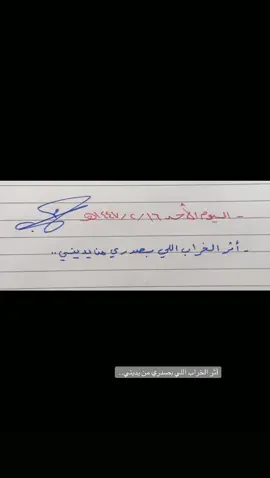 - اليوم الأحد ١٦ / ٢ / ١٤٤٧هـ
- أثر الخراب اللي بصدري من يديني ..
أثر الخراب اللي بصدري من يديني..